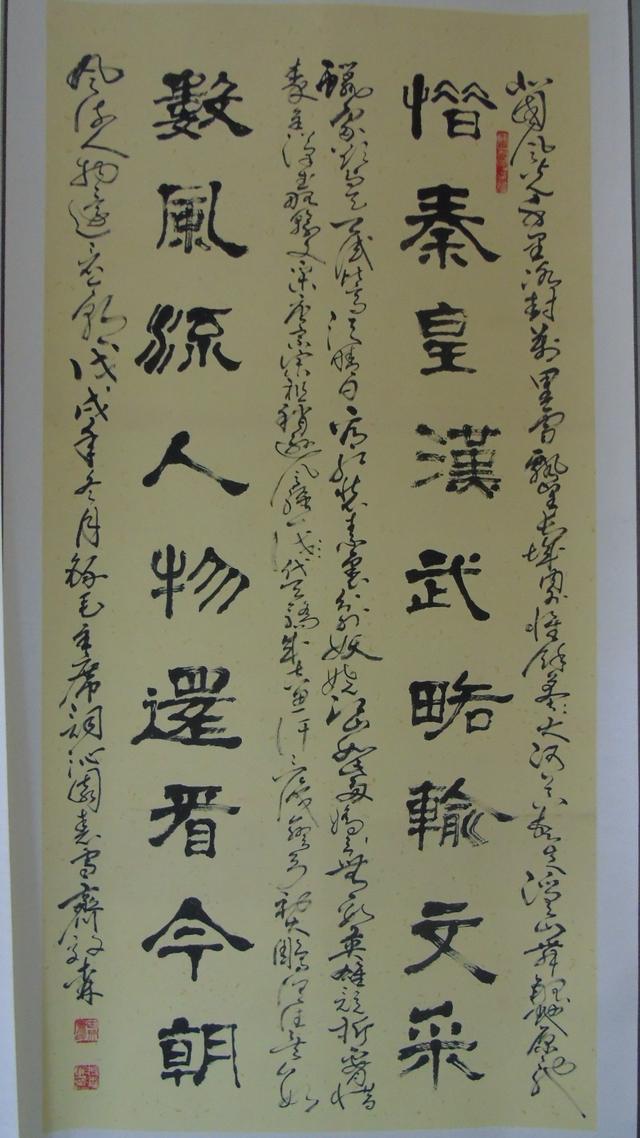 北國風光千里冰封萬里雪飄望長城內外惟餘莽莽大河上下頓失滔滔山舞銀蛇原馳
惜秦皇漢武略輸文采
蠟象欲與天公試比高須晴日看紅裝素裹分外妖嬈江山如此多嬌引無數英雄競折腰惜
秦皇漢武略輸文采唐宗宋祖稍遜風騷一代天驕成吉思汗只識彎弓射大雕俱往矣數
數風流人物還看今朝
風流人物還看今朝戊戌年冬月錄毛主席詞沁園春雪齊敬森